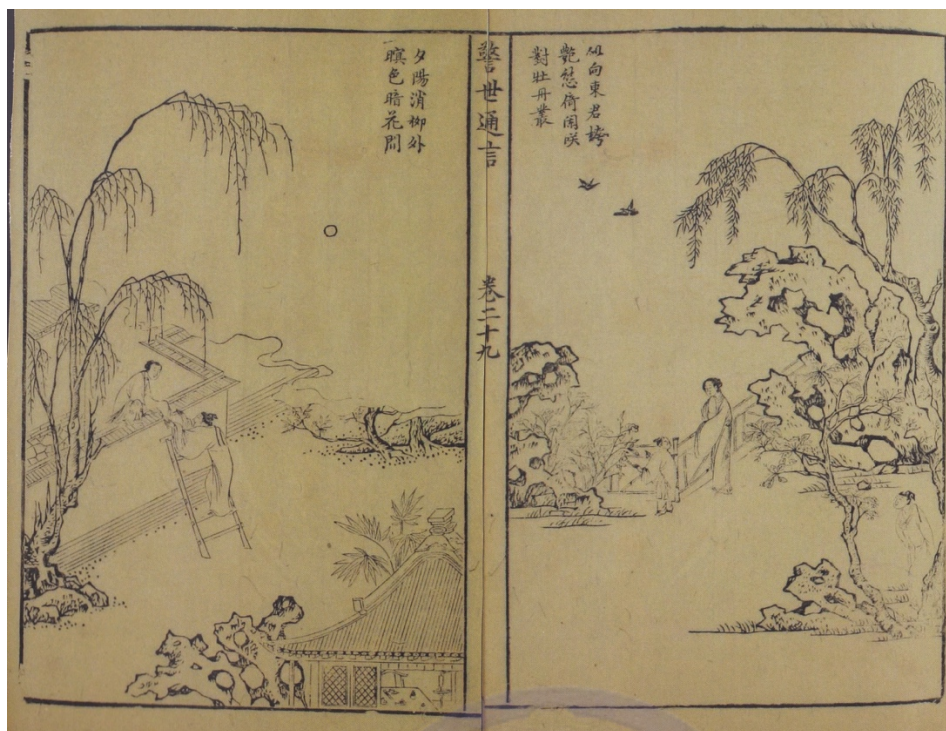 似向東君誇
艶態倚闌咲
對牡丹叢
警世通言
卷二十九
夕陽消柳外
暝色暗花間